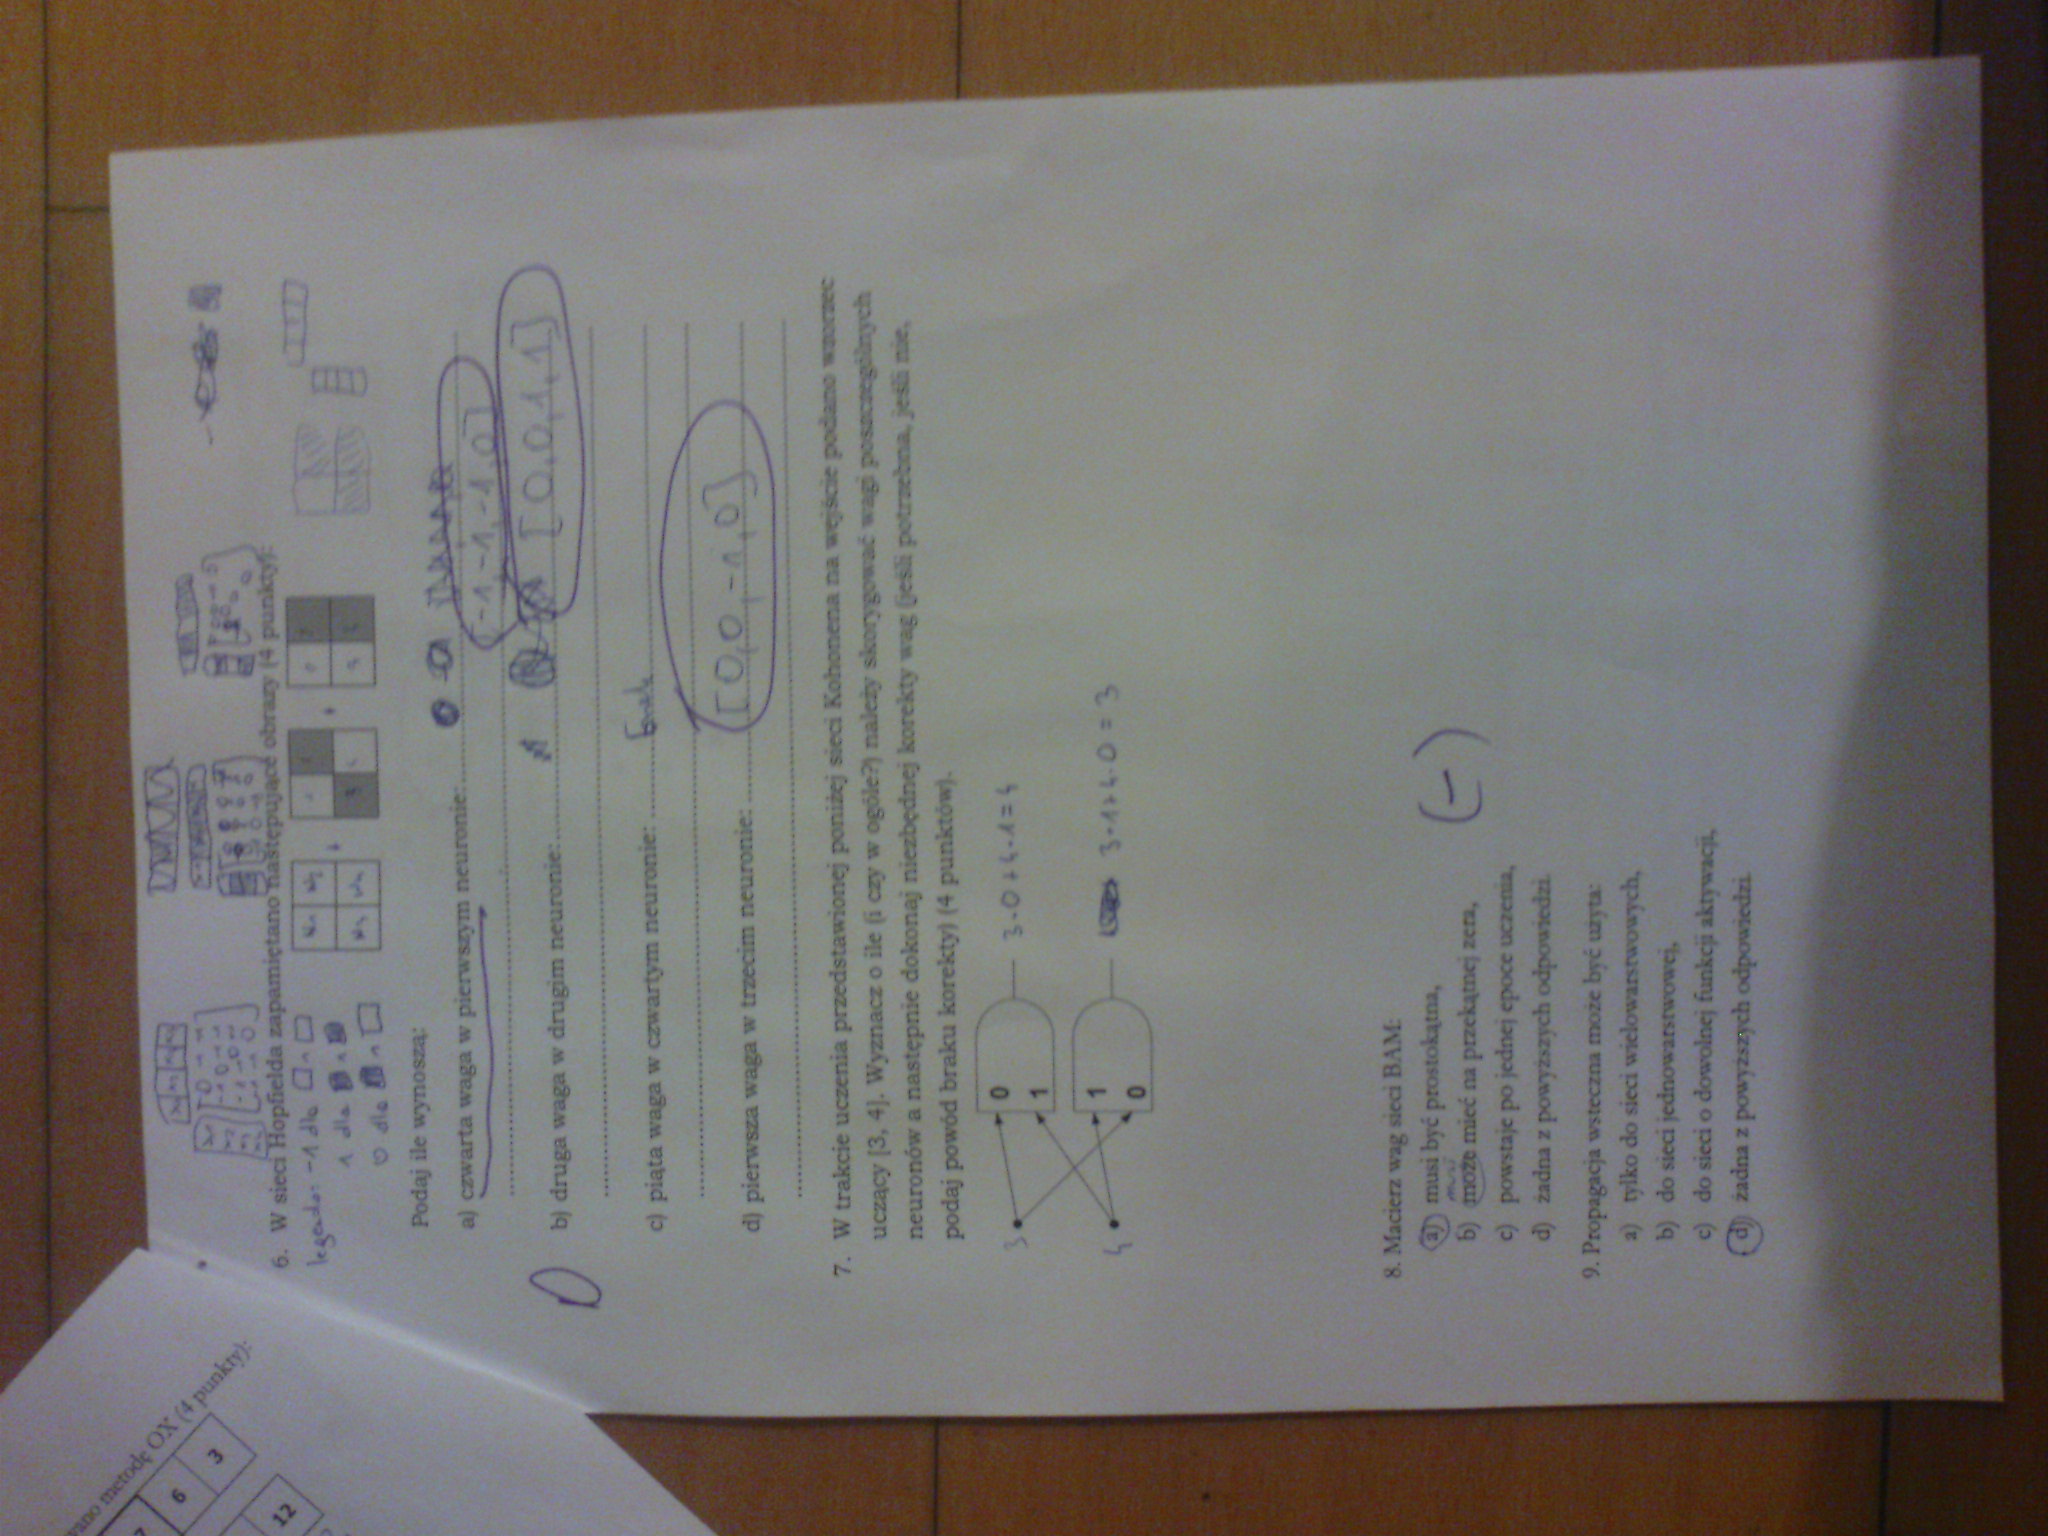 6. W sieci Hopfielda zapamiętano następujące obrazy (4 punkty):
-1 dla
1 dla
0 dla
Podaj ile wynoszą:
a) czwarta waga w pierwszym neuronie:
[-1,-1,-1,0]
b) druga waga w drugim neuronie:
[0,0,1,1]
c) piąta waga w czwartym neuronie:
d) pierwsza waga w trzecim neuronie:
[0,0,-1,0]
7. W trakcie uczenia przedstawionej poniżej sieci Kohonena na wejście podano wzorzec
uczący [3, 4]. Wyznacz o ile (i czy w ogóle?) należy skorygować wagi poszczególnych
neuronów a następnie dokonaj niezbędnej korekty wag (jeśli potrzebna, jeśli nie,
podaj powód braku korekty) (4 punktów).
3
0
1
3·0+4·1=4
4
1
0
3·1+4·0=3
8. Macierz wag sieci BAM:
a) musi być prostokątna,
b) może mieć na przekątnej zera,
c) powstaje po jednej epoce uczenia,
d) żadna z powyższych odpowiedzi.
(-)
9. Propagacja wsteczna może być użyta:
a) tylko do sieci wielowarstwowych,
b) do sieci jednowarstwowej,
c) do sieci o dowolnej funkcji aktywacji,
d) żadna z powyższych odpowiedzi.
metodę OX (4 punkty):
6 3
12